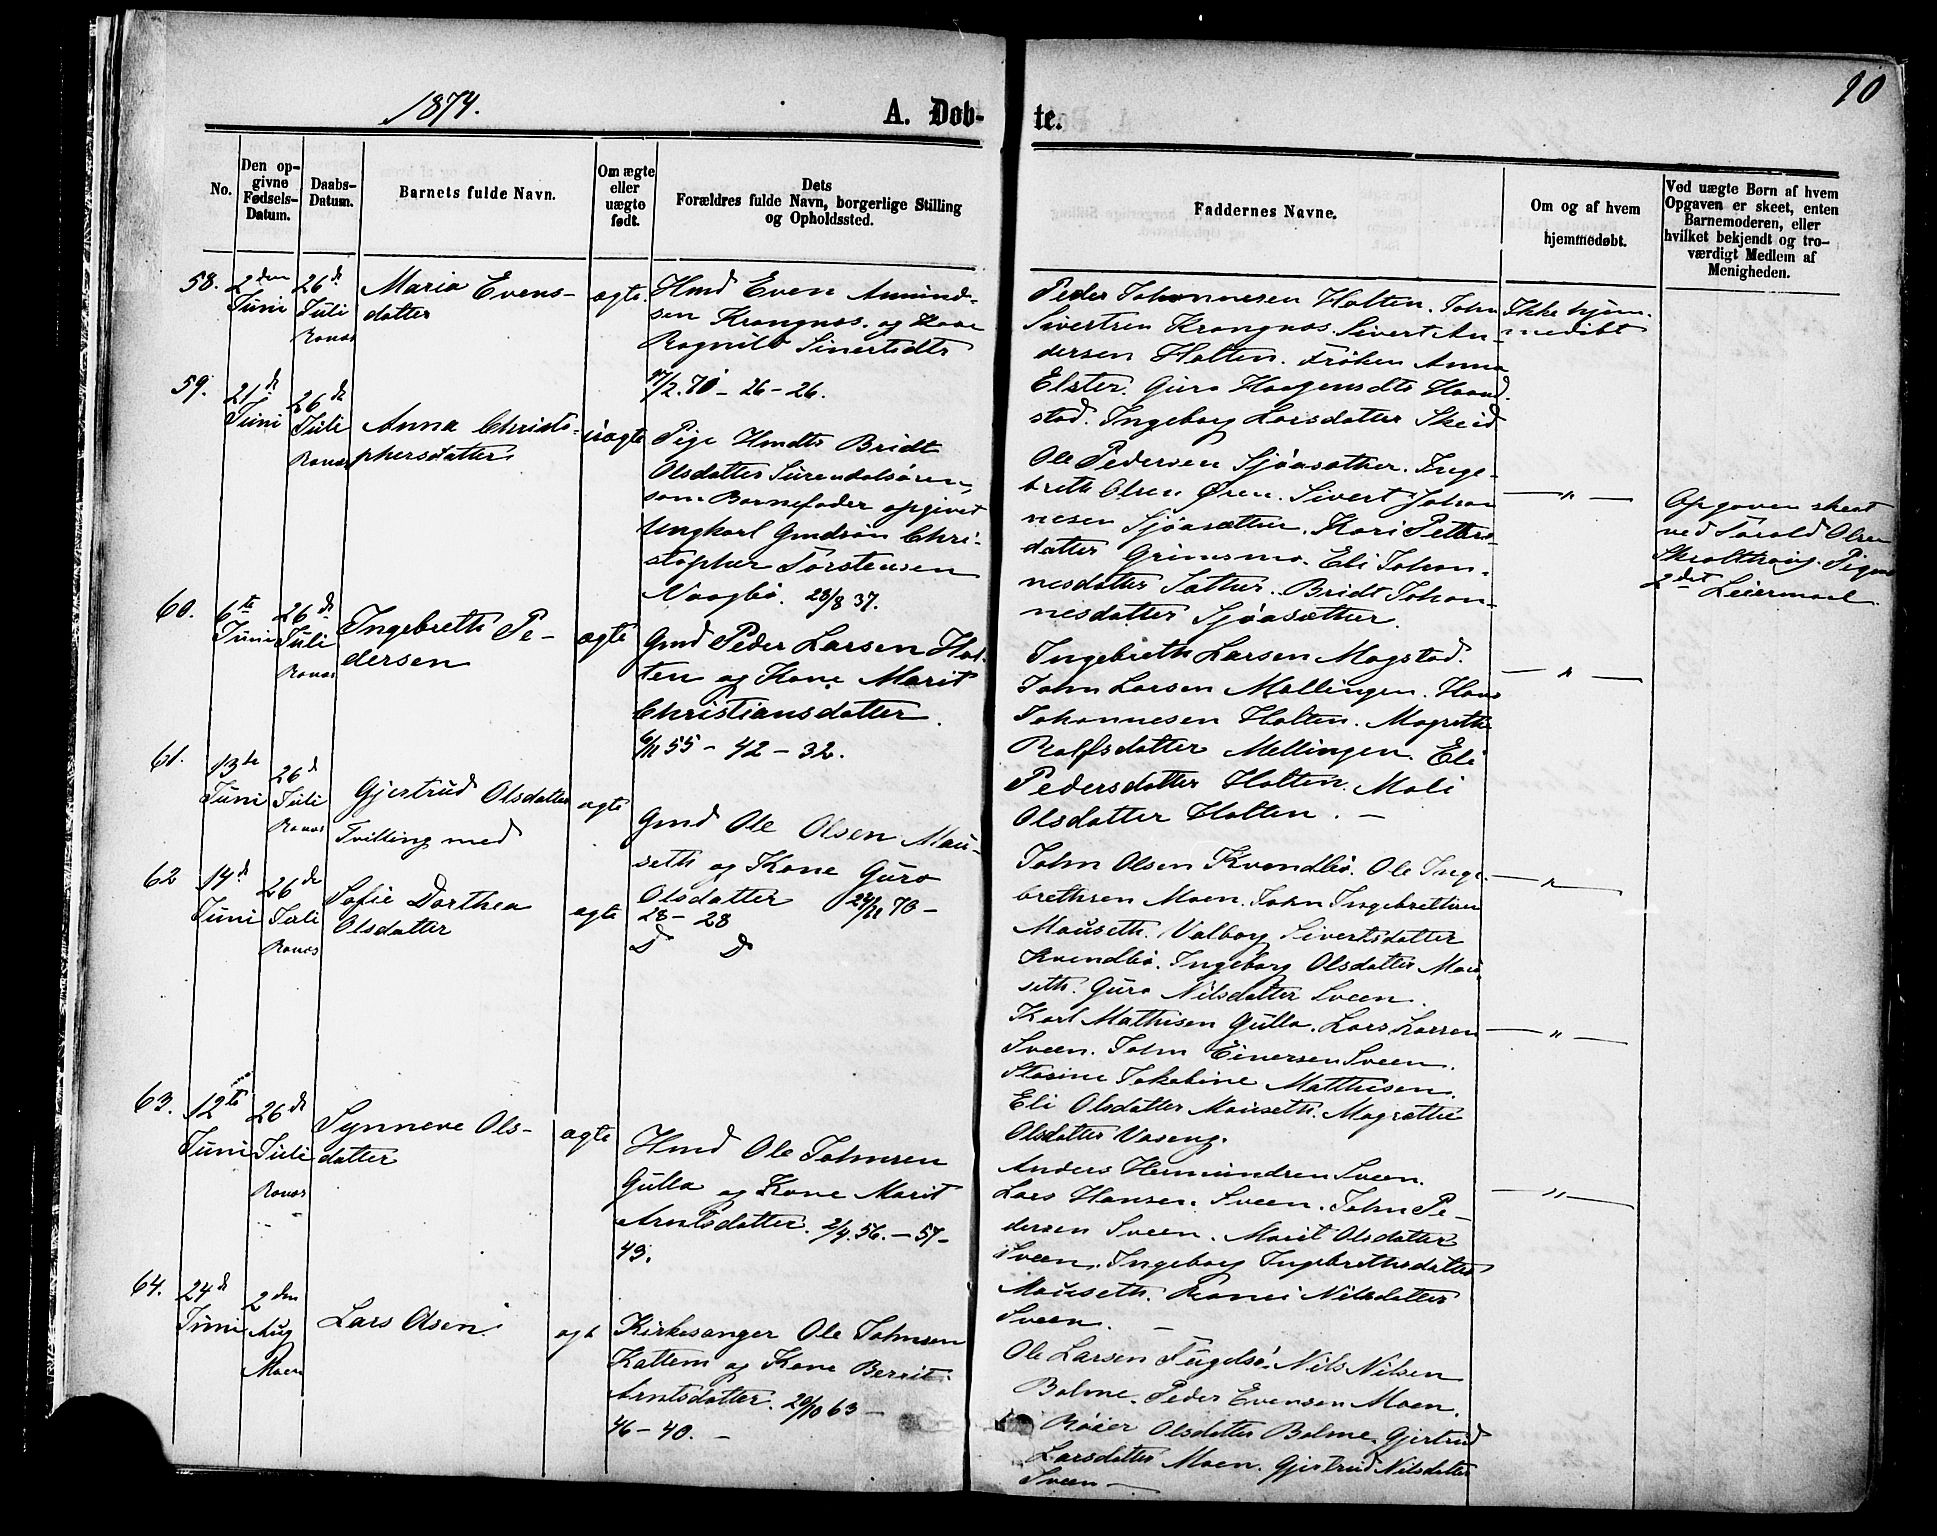 1874.
A. Døb-
te.
10
No.
Den op-
givne
Fødsels-
Datum.
Daabs-
Datum.
Barnets fulde Navn.
Om ægte
eller
uægte
født.
Dets
Forældres fulde Navn, borgerlige Stilling
og Opholdssted.
Faddernes Navne.
Om og af hvem
hjemmedøbt.
Ved uægte Børn af hvem
Opgaven er skeet, enten
Barnemoderen, eller
hvilket bekjendt og tro-
værdigt Medlem af
Menigheden.
58.
2den
Juni
26de
Juli
Ranæs
Maria Evens-
datter
ægte
Hmd Even Amund-
sen Krangnæs og Kone
Ragnild Sivertsdtr
17/2.70 - 26 - 26.
Peder Johannesen Holten. John
Sivertsen Krangnæs. Sivert An-
dersen Holten. Frøken Anna
Elster. Guro Haagensdtr Haand-
stad. Ingeborg Larsdatter Skeid
Ikke hjem-
medøbt
59.
21de
Juni
26de
Juli
Ranæs
Anna Christo-
phersdatter
uægte
Pige Hmdtr Bridt
Olsdatter Surendalsøren,
som Barnefader opgivet
Ungkarl Gmdsøn Chri-
stopher Torstensen
Naagbø. 28/8 37.
Ole Pedersen Sjøasæther. Inge-
breth Olsen Øren. Sivert Johan-
nesen Sjøasæther. Kari Petters-
datter Grimsmo. Eli Johan-
nesdatter Sæther. Bridt Johan-
nesdatter Sjøasæther.
— " —
Opgaven skeet
ved Torald Olsen
2det Leiermaal
60.
6te
Juni
26de
Juli
Ranæs
Ingebreth Pe-
dersen
ægte
Gmd Peder Larsen Hol-
ten og Kone Marit
Christiansdatter.
6/11 55 - 42 - 32.
Ingebreth Larsen Mogstad.
John Larsen Mellingen. Hans
Johannesen Holten. Magrethe
Rolfsdatter Mellingen. Eli
Pedersdatter Holten. Mali
Olsdatter Holten. —
— " —
61.
13de
Juni
26de
Juli
Ranæs
Gjertrud Olsdatter
Tvilling med
ægte
Gmd Ole Olsen Mau-
seth og Kone Guro
Olsdatter 29/12 70 -
28 - 28
D D
John Olsen Kvendbø. Ole Inge-
brethsen Moen. John Ingebrethsen
Mauseth. Valborg Sivertsdatter
Kvendbø. Ingeborg Olsdatter Mau-
seth. Guro Nilsdatter Sveen.
— " —
62
14de
Juni
26de
Juli
Ranæs
Sofie Dorthea
Olsdatter
ægte
Karl Mathisen Gulla. Lars Larsen
Sveen. John Einersen Sveen.
Stasine Jakobine Matthisen.
Eli Olsdatter Mauseth. Magrethe
Olsdatter Vaseng.
— " —
63.
12te
Juni
26de
Juli
Ranæs
Synneve Ols-
datter
ægte
Hmd Ole Johnsen
Gulla og Kone Marit
Arntsdatter. 2/4.56. - 57 -
43.
Anders Hermundsen Sveen.
Lars Hansen. Sveen. John Pe-
dersen Sveen. Marit Olsdatter
Sveen. Ingeborg Ingebrethsdatter
Mauseth. Ranei Nilsdatter
Sveen. —
— " —
64.
24de
Juni
2den
Aug
Moen
Lars Olsen.
ægt
Kirkesanger Ole Johnsen
Kattem og Kone Berrit
Arntsdatter. 20/10 63 -
46 - 40. -
Ole Larsen Fugelsø. Nils Nilsen
Bolme. Peder Evensen Moen.
Olsdatter Bolme. Gjertrud
Larsdatter Moen. Gjertrud Nilsdatter
Sveen —